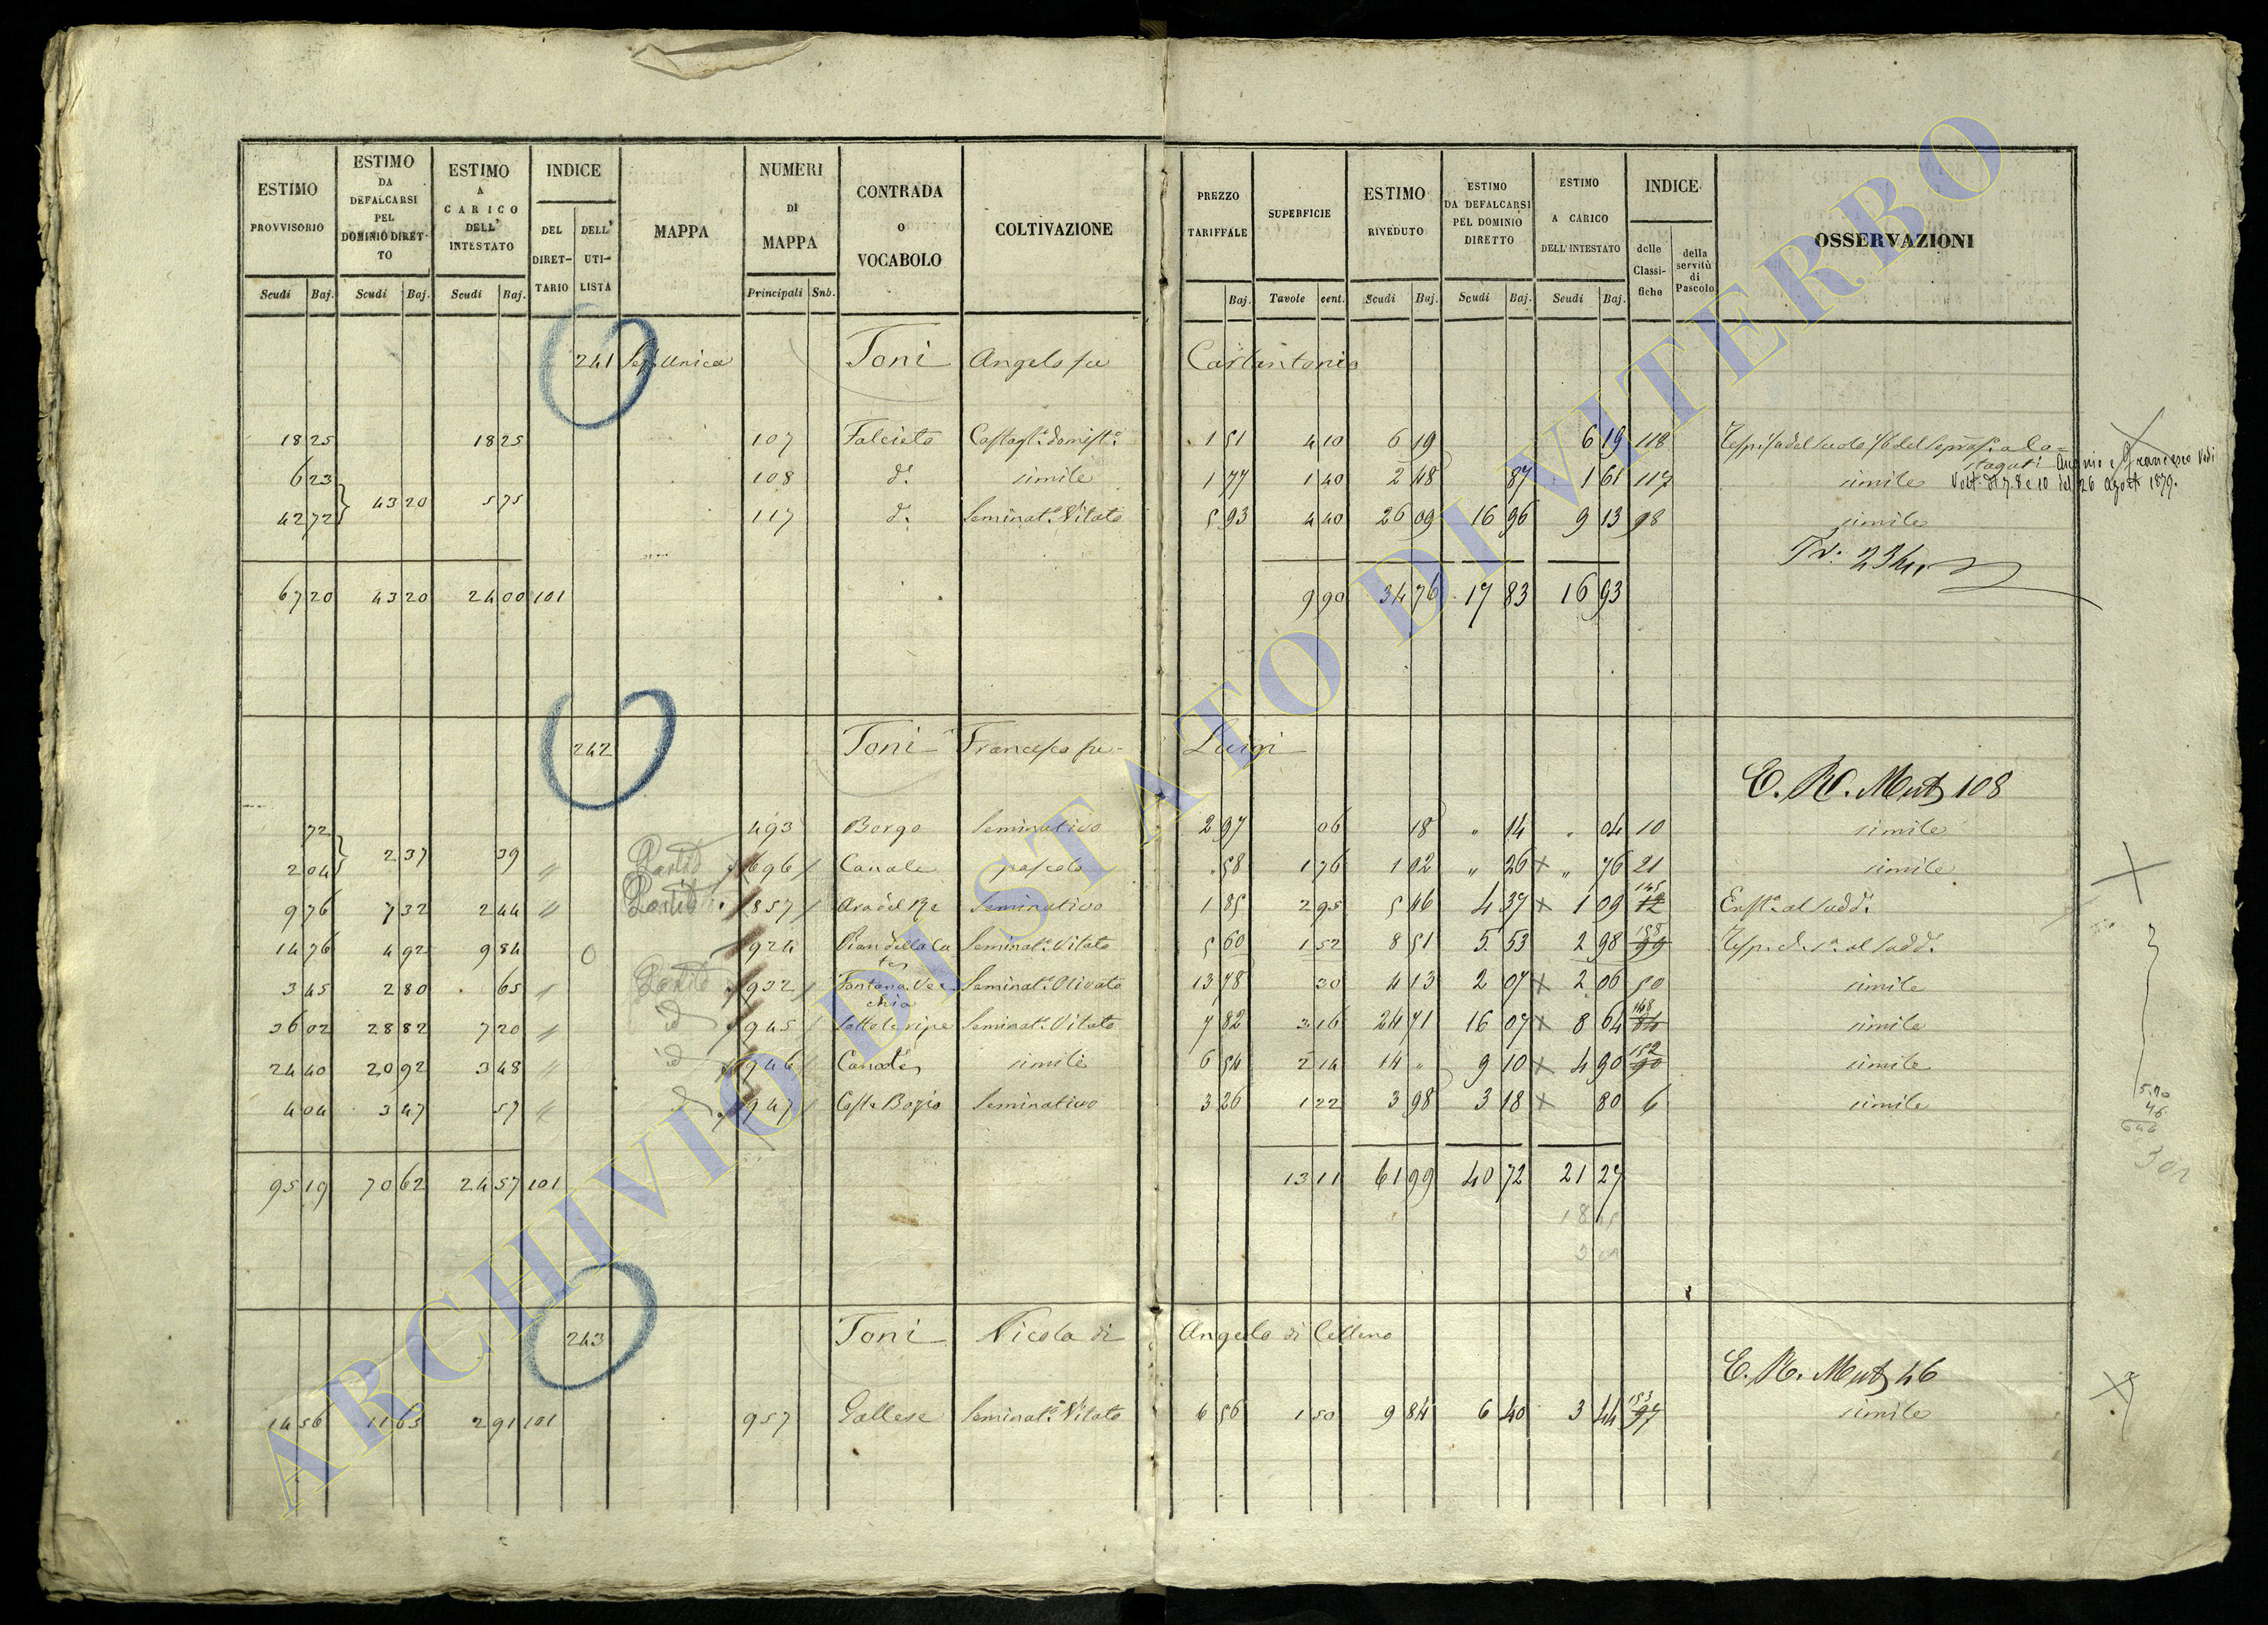 ESTIMO PROVVISORIO Scudi Baj.
ESTIMO DA DEFALCARSI PEL DOMINIO DIRET-TO Scudi Baj.
ESTIMO A CARICO DELL' INTESTATO Scudi Baj.
INDICE DEL DIRET-TARIO DELL' UTI-LISTA
MAPPA
NUMERI DI MAPPA Principali Snb.
CONTRADA O VOCABOLO
COLTIVAZIONE
PREZZO TARIFFALE Baj.
SUPERFICIE Tavole cent.
ESTIMO RIVEDUTO Scudi Baj.
ESTIMO DA DEFALCARSI PEL DOMINIO DIRETTO Scudi Baj.
ESTIMO A CARICO DELL' INTESTATO Scudi Baj.
INDICE delle Classi-fiche della servitù di Pascolo
OSSERVAZIONI
241 Unica Toni Angelo fu Carlantonio
18 25 18 25 107 Falcieto 1 51 4 10 6 19 6 19 118
6 23 108 d.º simile 1 77 1 40 2 48 87 1 61 117 simile
43 20 5 75
42 72 117 d.º Seminat.º Vitato 5 93 4 40 26 09 16 96 9 13 98 simile
67 20 43 20 24 00 101 9 90 34 76 17 83 16 93
242 Toni Francesco fu Luigi
E. R. Mut 108
72 493 Borgo Seminativo 2 97 06 18 " 14 " 04 10 simile
2 37 39
2 04 696 Canale pascolo 58 1 76 1 02 " 26 " 76 21 simile
9 76 7 32 2 44 857 Ara del Re Seminativo 1 85 2 95 5 46 4 37 1 09
14 76 4 92 9 84 924 Seminat.º Vitato 5 60 1 52 8 51 5 53 2 98 99
3 45 2 80 65 932 Fontana Vecchia Seminat.º Olivato 13 78 30 4 13 2 07 2 06 50 simile
36 02 28 82 7 20 id 945 Sotto le ripe Seminat.º Vitato 7 82 3 16 24 71 16 07 8 64 simile
24 40 20 92 3 48 id 946 simile 6 54 2 14 14 " 9 10 4 90 152 90 simile
4 04 3 47 57 947 Seminativo 3 26 1 22 3 98 3 18 80 6 simile
95 19 70 62 24 57 101 13 11 61 99 40 72 21 27
243 Toni Nicola di Angelo di Celleno
E. R. Mut 46
14 56 11 65 2 91 101 957 Gallese Seminat.º Vitato 6 56 1 50 9 84 6 40 3 44 153 97 simile
ARCHIVIO DI STATO DI VITERBO